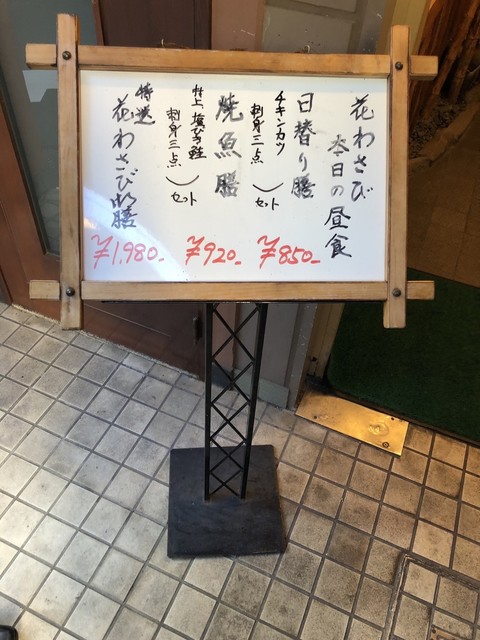 花わさび
本日の昼食
日替り膳
チキンカツ
刺身三点
セット
¥850-
焼魚膳
特上 塩びき鮭
刺身三点
セット
¥920-
特選
花わさび御膳
¥1.980-